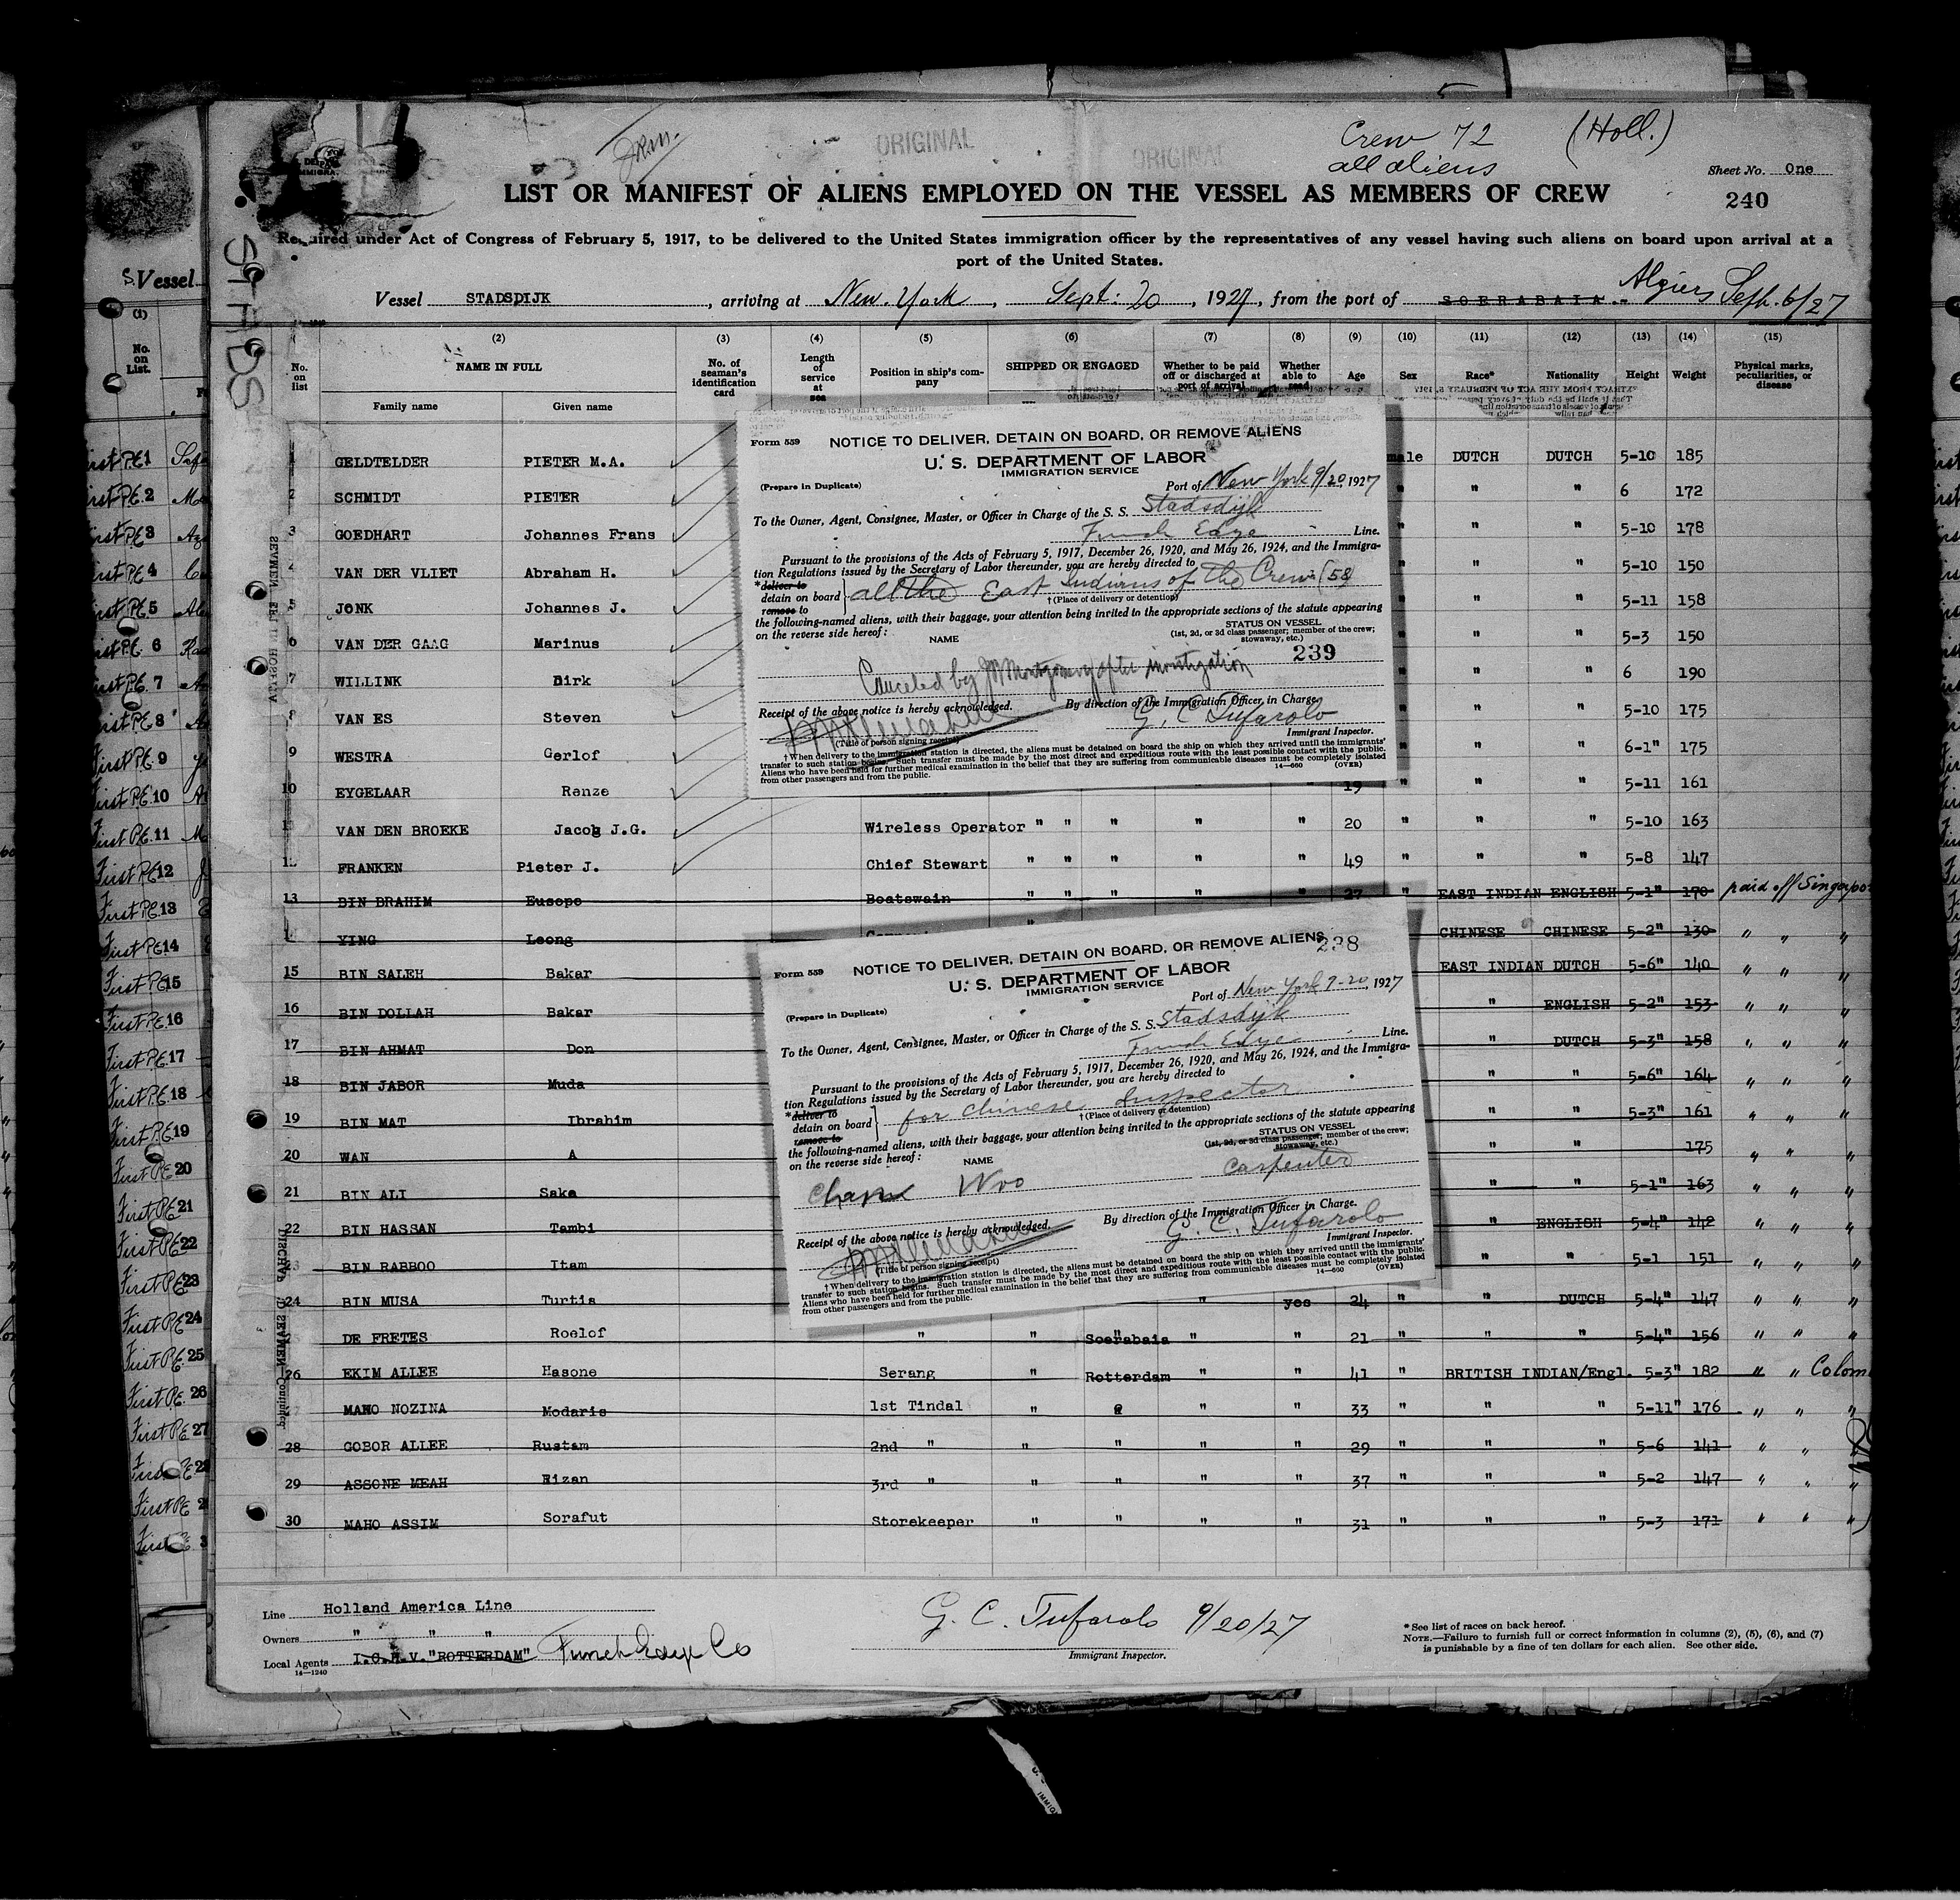 ORIGINAL
ORIGINAL
Crew 72 (Holl.)
all aliens
Sheet No. One
LIST OR MANIFEST OF ALIENS EMPLOYED ON THE VESSEL AS MEMBERS OF CREW
240
Required under Act of Congress of February 5, 1917, to be delivered to the United States immigration officer by the representatives of any vessel having such aliens on board upon arrival at a
port of the United States.
Vessel STADSDIJK, arriving at New York, Sept: 20, 1927, from the port of SOERABAIA. Algiers Sept. 6/27
(2) (3) (4) (5) (6) (7) (8) (9) (10) (11) (12) (13) (14) (15)
No. on list
NAME IN FULL
Family name Given name
No. of seaman's identification card
Length of service at sea
Position in ship's company
SHIPPED OR ENGAGED
Whether to be paid off or discharged at port of arrival
Whether able to read
Age
Sex
Race*
Nationality
Height
Weight
Physical marks, peculiarities, or disease
1 GELDTELDER PIETER M.A. male DUTCH DUTCH 5-10 185
2 SCHMIDT PIETER " " " 6 172
3 GOEDHART Johannes Frans " " " 5-10 178
VAN DER VLIET Abraham H. " " " 5-10 150
5 JONK Johannes J. " " " 5-11 158
6 VAN DER GAAG Marinus " " " 5-3 150
7 WILLINK Dirk " " " 6 190
8 VAN ES Steven " " " 5-10 175
9 WESTRA Gerlof " " " 6-1" 175
10 EYGELAAR Renze 19 " " " 5-11 161
VAN DEN BROEKE Jacob J.G. Wireless Operator " " " " " 20 " " " 5-10 163
FRANKEN Pieter J. Chief Stewart " " " " " 49 " " " 5-8 147
13 BIN BRAHIM Eusope Boatswain " " " " " 27 " EAST INDIAN ENGLISH 5-1" 170 paid off Singapo
YING Leong CHINESE CHINESE 5-2" 130 " " "
15 BIN SALEH Bakar EAST INDIAN DUTCH 5-6" 140 " " "
16 BIN DOLLAH Bakar " ENGLISH 5-2" 153 " " "
17 BIN AHMAT Don " DUTCH 5-3" 158 " " "
18 BIN JABOR Muda " " 5-6" 164 " " "
19 BIN MAT Ibrahim " " 5-3" 161 " " "
20 WAN A " " 175 " " "
21 BIN ALI Saka " " 5-1" 163 " " "
22 BIN HASSAN Tambi " ENGLISH 5-4" 142 " " "
BIN RABBOO Itam " " 5-1 151 " " "
24 BIN MUSA Turtis " yes 24 " " DUTCH 5-4" 147 " " "
DE FRETES Roelof " " Soerabaia " " 21 " " " 5-4" 156 " " "
26 EKIM ALLEE Hasone Serang " Rotterdam " " 41 " BRITISH INDIAN/Engl. 5-3" 182 " " Colom
MAHO NOZINA Modaris 1st Tindal " " " 33 " " " 5-11" 176 " " "
28 GOBOR ALLEE Rustam 2nd " " " " " 29 " " " 5-6 141 " " "
29 ASSONE MEAH Rizan 3rd " " " " " 37 " " " 5-2 147 " " "
30 MAHO ASSIM Sorafut Storekeeper " " " " 31 " " " 5-3 171 " " "
Form 559
NOTICE TO DELIVER, DETAIN ON BOARD, OR REMOVE ALIENS
U. S. DEPARTMENT OF LABOR
IMMIGRATION SERVICE
(Prepare in Duplicate)
Port of New York 9/20, 1927
To the Owner, Agent, Consignee, Master, or Officer in Charge of the S. S. Stadsdijk
Funch Edye Line.
Pursuant to the provisions of the Acts of February 5, 1917, December 26, 1920, and May 26, 1924, and the Immigra-
tion Regulations issued by the Secretary of Labor thereunder, you are hereby directed to
*deliver to
detain on board all the East Indians of the Crew (58)
remove to
†(Place of delivery or detention)
the following-named aliens, with their baggage, your attention being invited to the appropriate sections of the statute appearing
on the reverse side hereof:
NAME
STATUS ON VESSEL
(1st, 2d, or 3d class passenger; member of the crew; stowaway, etc.)
239
Canceled by JW Montgomery after investigation
Receipt of the above notice is hereby acknowledged.
By direction of the Immigration Officer, in Charge.
G. C. Tufarolo
(Title of person signing receipt)
Immigrant Inspector.
†When delivery to the immigration station is directed, the aliens must be detained on board the ship on which they arrived until the immigrants'
transfer to such station begins. Such transfer must be made by the most direct and expeditious route with the least possible contact with the public.
Aliens who have been held for further medical examination in the belief that they are suffering from communicable diseases must be completely isolated
from other passengers and from the public.
14—660 (OVER)
238
Form 559
NOTICE TO DELIVER, DETAIN ON BOARD, OR REMOVE ALIENS
U. S. DEPARTMENT OF LABOR
IMMIGRATION SERVICE
(Prepare in Duplicate)
Port of New York 9-20, 1927
To the Owner, Agent, Consignee, Master, or Officer in Charge of the S. S. Stadsdijk
Funch Edye Line.
Pursuant to the provisions of the Acts of February 5, 1917, December 26, 1920, and May 26, 1924, and the Immigra-
tion Regulations issued by the Secretary of Labor thereunder, you are hereby directed to
*deliver to
detain on board for chinese Inspector
remove to
†(Place of delivery or detention)
the following-named aliens, with their baggage, your attention being invited to the appropriate sections of the statute appearing
on the reverse side hereof:
NAME
STATUS ON VESSEL
(1st, 2d, or 3d class passenger; member of the crew; stowaway, etc.)
Woo Carpenter
Receipt of the above notice is hereby acknowledged.
By direction of the Immigration Officer in Charge.
G. C. Tufarolo
(Title of person signing receipt)
Immigrant Inspector.
†When delivery to the immigration station is directed, the aliens must be detained on board the ship on which they arrived until the immigrants'
transfer to such station begins. Such transfer must be made by the most direct and expeditious route with the least possible contact with the public.
Aliens who have been held for further medical examination in the belief that they are suffering from communicable diseases must be completely isolated
from other passengers and from the public.
14—660 (OVER)
Line Holland America Line
Owners " " "
Local Agents "ROTTERDAM" Funch Edye Co
14—1240
G. C. Tufarolo 9/20/27
Immigrant Inspector.
*See list of races on back hereof.
NOTE.—Failure to furnish full or correct information in columns (2), (5), (6), and (7)
is punishable by a fine of ten dollars for each alien. See other side.
S. Vessel
(1)
No. on List.